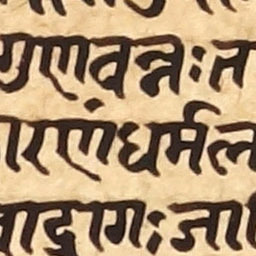 गुणवन्नःत
ारणंधर्मल
ाद्रागःजा